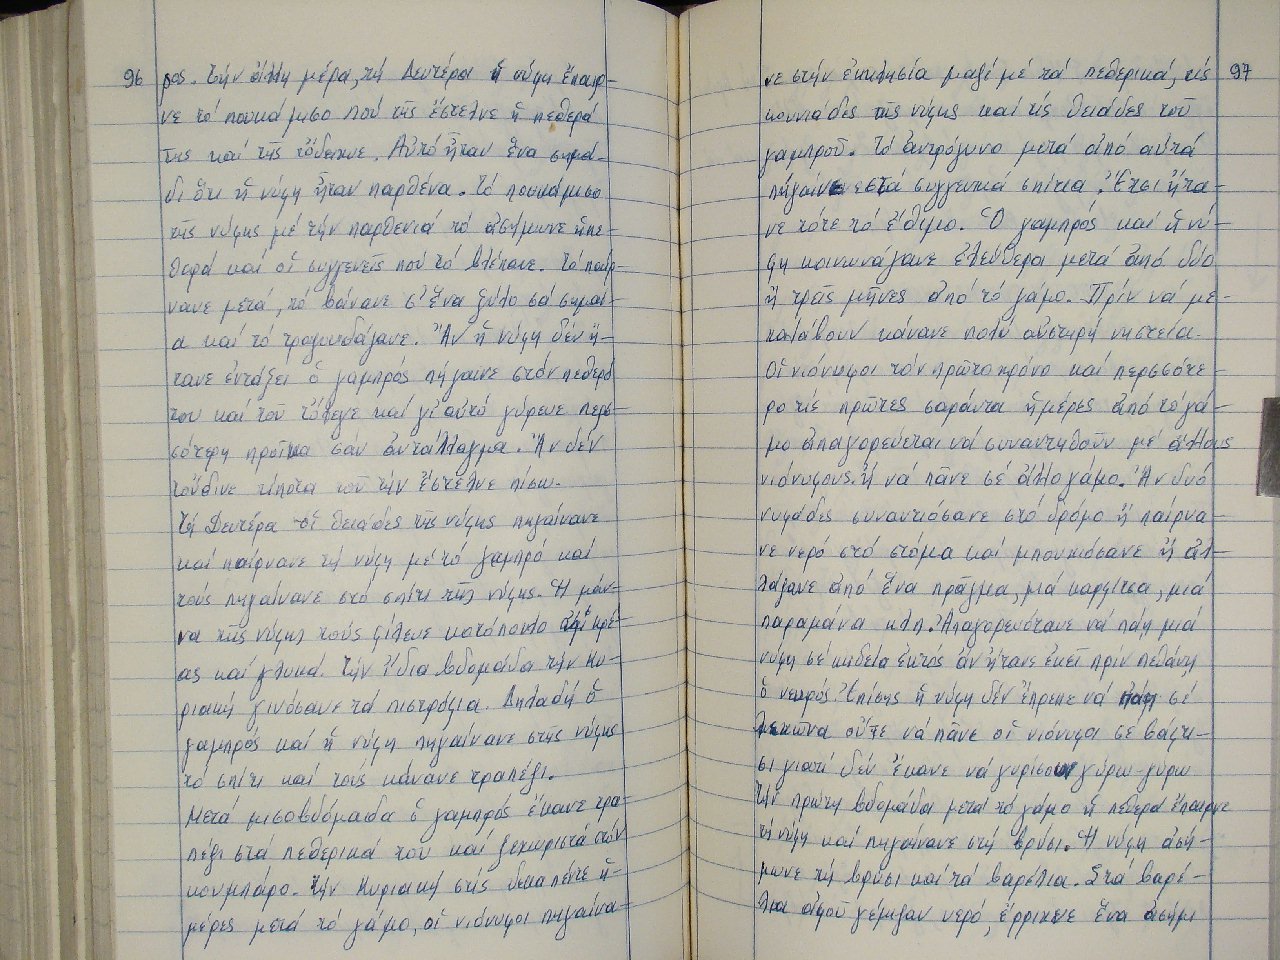 96
ρος. Τήν ἄλλη μέρα, τή Δευτέρα ἡ νύφη ἔπαιρ-
νε τό πουκάμισο πού τῆς ἔστελνε ἡ πεθερά
της καί τῆς τὄδειχνε. Αὐτό ἦταν ἕνα σημά-
δι ὅτι ἡ νύφη ἦταν παρθένα. Τό πουκάμισο
τῆς νύφης μέ τήν παρθενιά τό ἀσήμωνε ἡ πε-
θερά καί οἱ συγγενεῖς πού τό βλέπανε. Τό παίρ-
νανε μετά, τό βάνανε σ' ἕνα ξύλο σά σημαί-
α καί τό τραγουδάγανε. Ἄν ἡ νύφη δέν ἤ-
τανε ἐντάξει ὁ γαμπρός πήγαινε στόν πεθερό
του καί τοῦ τὄλεγε καί γι' αὐτό γύρευε περσ-
σότερη προῖκα σάν ἀντάλλαγμα. Ἄν δέν
τοὔδινε τίποτα τοῦ τήν ἔστελνε πίσω.
Τή Δευτέρα οἱ θειάδες τῆς νύφης πηγαίνανε
καί παίρνανε τή νύφη μέ τό γαμπρό καί
τούς πηγαίνανε στό σπίτι τῆς νύφης. Ἡ μάν-
να τῆς νύφης τούς φίλευε κοτόπουλο ἤ κρέ-
ας καί γλυκά. Τήν ἴδια βδομάδα τήν Κυ-
ριακή γινόσανε τά πιστρόφια. Δηλαδή ὁ
γαμπρός καί ἡ νύφη πηγαίνανε στῆς νύφης
τό σπίτι καί τούς κάνανε τραπέζι.
Μετά μισοβδόμαδα ὁ γαμπρός ἔκανε τρα-
πέζι στά πεθερικά του καί ξεχωριστά στόν
κουμπάρο. Τήν Κυριακή στίς δεκαπέντε ἡ-
μέρες μετά τό γάμο, οἱ νιόνυφοι πηγαίνα-
97
νε στήν ἐκκλησία μαζί μέ τά πεθερικά, τίς
κουνιάδες τῆς νύφης καί τίς θειάδες τοῦ
γαμπροῦ. Τό ἀντρόγυνο μετά ἀπό αὐτά
πήγαινε στά συγγενικά σπίτια. Ἔτσι ἤτα-
νε τότε τό ἔθιμο. Ὁ γαμπρός καί ἡ νύ-
φη κοινωνάγανε ἐλεύθερα μετά ἀπό δύο
ἤ τρεῖς μῆνες ἀπό τό γάμο. Πρίν νά με-
ταλάβουν κάνανε πολύ αὐστηρή νηστεία.
Οἱ νιόνυφοι τόν πρῶτο χρόνο καί περσσότε-
ρο τίς πρῶτες σαράντα ἡμέρες ἀπό τό γά-
μο ἀπαγορεύεται νά συναντηθοῦν μέ ἄλλους
νιόνυφους ἤ νά πᾶνε σέ ἄλλο γάμο. Ἄν δυό
νυφάδες συναντιόσανε στό δρόμο ἤ παίρνα-
νε νερό στό στόμα καί μπουκιόσανε ἤ ἀλ-
λάγανε ἀπό ἕνα πράγμα, μιά καρφίτσα, μιά
παραμάνα κλπ. Ἀπαγορευότανε νά πάη μιά
νύφη σέ κηδεία ἐκτός ἄν ἤτανε ἐκεῖ πρίν πεθάνη
ὁ νεκρός. Ἐπίσης ἡ νύφη δέν ἔπρεπε νά πάη σέ
λεχῶνα οὔτε νά πᾶνε οἱ νιόνυφοι σε βάφτι-
ση γιατί δέν ἔκανε νά γυρίσουν γύρω γύρω
Τήν πρώτη βδομάδα μετά τό γάμο ἡ πεθερά ἔπαιρνε
τή νύφη καί πηγαίνανε στή βρύση. Ἡ νύφη ἀσή-
μωνε τή βρύση καί τά βαρέλια. Στά βαρέ-
λια ἀφοῦ γέμιζαν νερό, ἔρριχνε ἕνα ἀσήμι